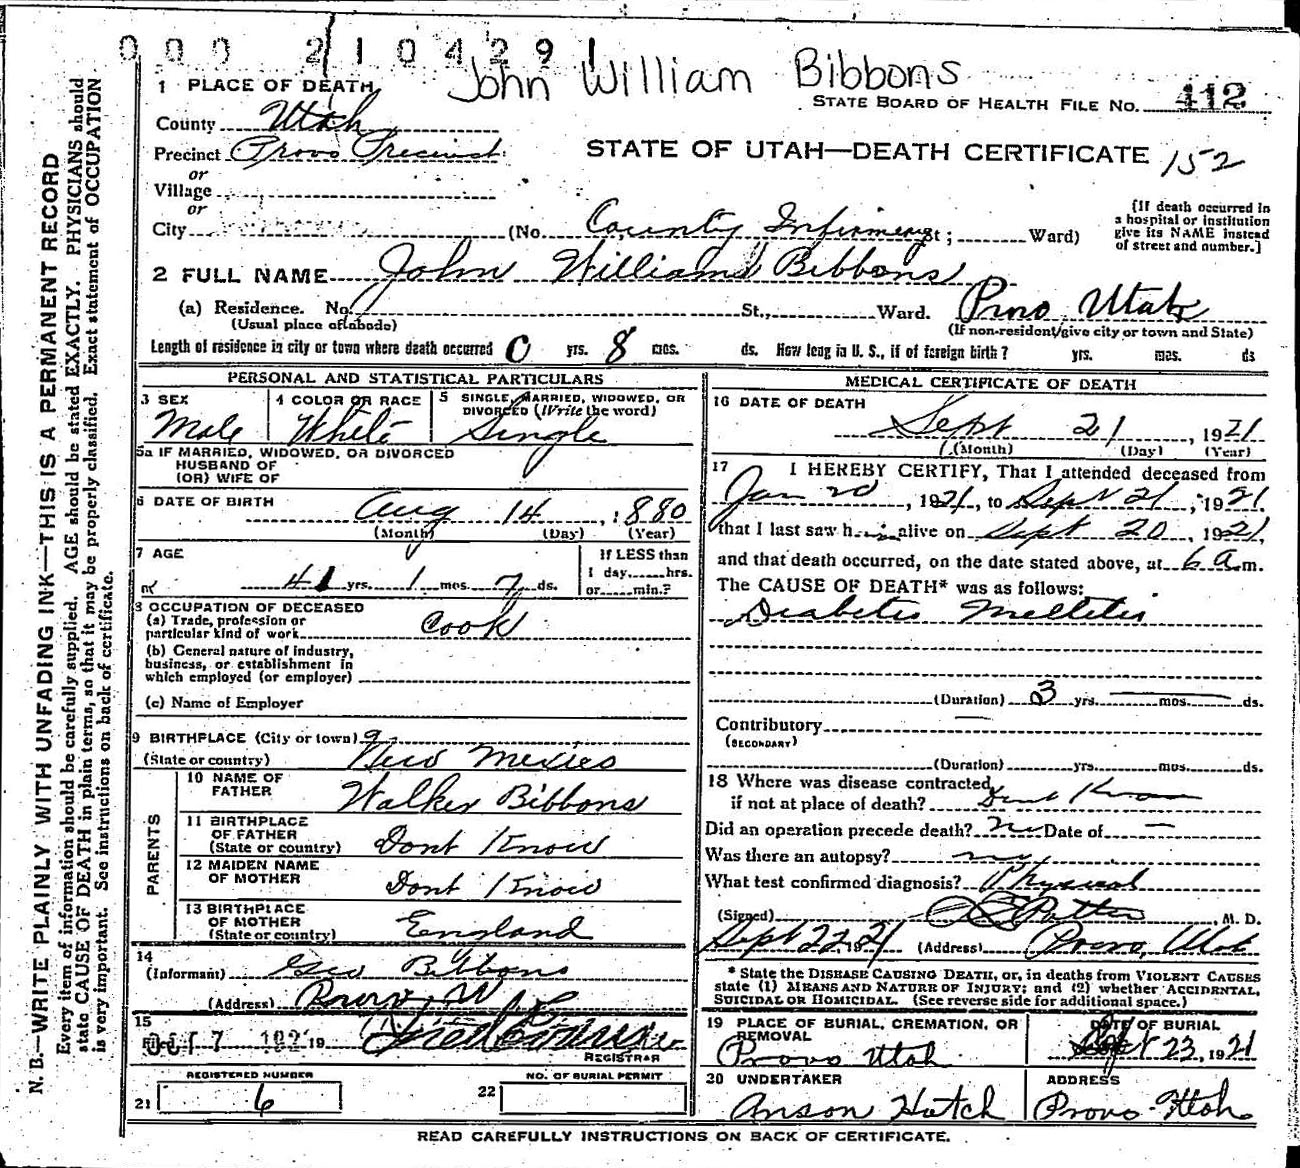 000 210429 1
John William Bibbons
1 PLACE OF DEATH
STATE BOARD OF HEALTH FILE No. 412
County Utah
Precinct Provo Precinct
STATE OF UTAH—DEATH CERTIFICATE 152
or
Village
or
City (No. County Infirmery St; Ward)
[If death occurred in a hospital or institution give its NAME instead of street and number.]
2 FULL NAME John William Bibbons
(a) Residence. No. St., Ward. Provo Utah
(Usual place of abode) (If non-resident give city or town and State)
Length of residence in city or town where death occurred 0 yrs. 8 mos. ds. How long in U. S., if of foreign birth? yrs. mos. ds
PERSONAL AND STATISTICAL PARTICULARS
3 SEX
Male
4 COLOR OR RACE
White
5 SINGLE, MARRIED, WIDOWED, OR DIVORCED (Write the word)
Single
5a IF MARRIED, WIDOWED, OR DIVORCED
HUSBAND OF
(OR) WIFE OF
6 DATE OF BIRTH
Aug 14, 1880
(Month) (Day) (Year)
7 AGE
41 yrs. 1 mos. 7 ds.
If LESS than
1 day, hrs.
or min.?
8 OCCUPATION OF DECEASED
(a) Trade, profession or
particular kind of work Cook
(b) General nature of industry,
business, or establishment in
which employed (or employer)
(c) Name of Employer
9 BIRTHPLACE (City or town)
(State or country) New Mexico
PARENTS
10 NAME OF FATHER Walker Bibbons
11 BIRTHPLACE OF FATHER
(State or country) Dont Know
12 MAIDEN NAME OF MOTHER Dont Know
13 BIRTHPLACE OF MOTHER
(State or country) England
14
(Informant) Geo Bibbons
(Address) Provo, U
15
Filed OCT 7 192 19
REGISTRAR
REGISTERED NUMBER
21 6
NO. OF BURIAL PERMIT
22
MEDICAL CERTIFICATE OF DEATH
16 DATE OF DEATH
Sept 21, 1921
(Month) (Day) (Year)
17 I HEREBY CERTIFY, That I attended deceased from
Jan 20, 1921, to Sept 21, 1921,
that I last saw him alive on Sept 20, 1921,
and that death occurred, on the date stated above, at 6 a.m.
The CAUSE OF DEATH* was as follows:
Diabetis Mellitis
(Duration) 3 yrs. mos. ds.
Contributory —
(SECONDARY)
(Duration) yrs. mos. ds.
18 Where was disease contracted,
if not at place of death? Dont Know
Did an operation precede death? no Date of —
Was there an autopsy? no
What test confirmed diagnosis? Physical
(Signed) M. D.
Sept 22, 1921 (Address) Provo, Utah
* State the DISEASE CAUSING DEATH, or, in deaths from VIOLENT CAUSES
state (1) MEANS AND NATURE OF INJURY; and (2) whether ACCIDENTAL,
SUICIDAL OR HOMICIDAL. (See reverse side for additional space.)
19 PLACE OF BURIAL, CREMATION, OR REMOVAL
Provo Utah
DATE OF BURIAL
23, 1921
20 UNDERTAKER
Anson Hatch
ADDRESS
Provo Utah
READ CAREFULLY INSTRUCTIONS ON BACK OF CERTIFICATE.
N. B.—WRITE PLAINLY WITH UNFADING INK—THIS IS A PERMANENT RECORD
Every item of information should be carefully supplied. AGE should be stated EXACTLY. PHYSICIANS should
state CAUSE OF DEATH in plain terms, so that it may be properly classified. Exact statement of OCCUPATION
is very important. See instructions on back of certificate.